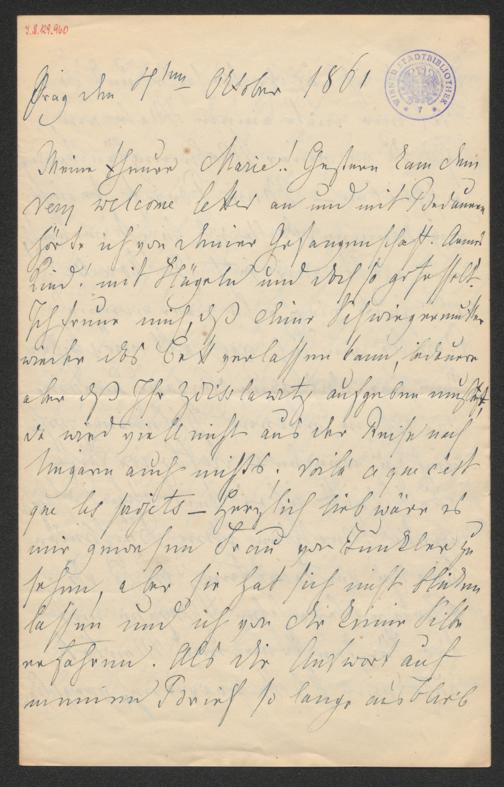 J.N. 129.960
WIENER STADTBIBLIOTHEK
* 7 *
Prag den 4ten Oktober 1861
Meine theure Marie!! Gestern kam dein
very welcome letter an und mit Bedauern
hörte ich von deiner Gefangenschaft. Armes
Kind! mit Flügeln und doch so gefesselt.
Ich freue mich, daß deine Schwiegermutter
wieder das Bett verlassen kann, bedaure
aber daß Ihr Zdißlawitz aufgeben mußtet,
da wird vielleicht aus der Reise nach
Ungarn auch nichts; voilà ce que c'est
que les projets – Herzlich lieb wäre es
mir gewesen Frau von Dunkler zu
sehen, aber sie hat sich nicht blicken
lassen und ich von dir keine Silbe
erfahren. Als die Antwort auf
meinen Brief so lange ausblieb